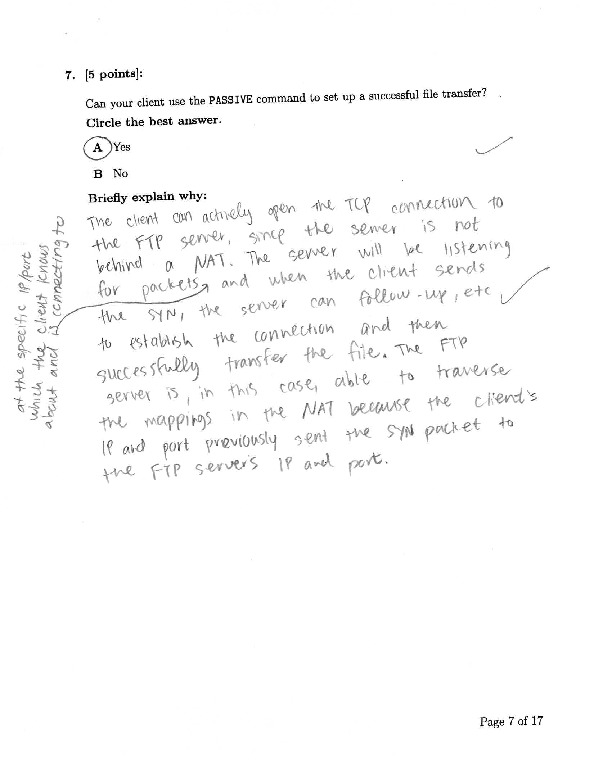 7. [5 points]:
Can your client use the PASSIVE command to set up a successful file transfer?
Circle the best answer.
A Yes
B No
Briefly explain why:
The client can actively open the TCP connection to
the FTP server, since the server is not
behind a NAT. The server will be listening
for packets, and when the client sends
the SYN, the server can follow-up, etc
to establish the connection and then
successfully transfer the file. The FTP
server is, in this case, able to traverse
the mappings in the NAT because the client's
IP and port previously sent the SYN packet to
the FTP server's IP and port.
at the specific IP/port
which the client knows
about and is connecting to
Page 7 of 17